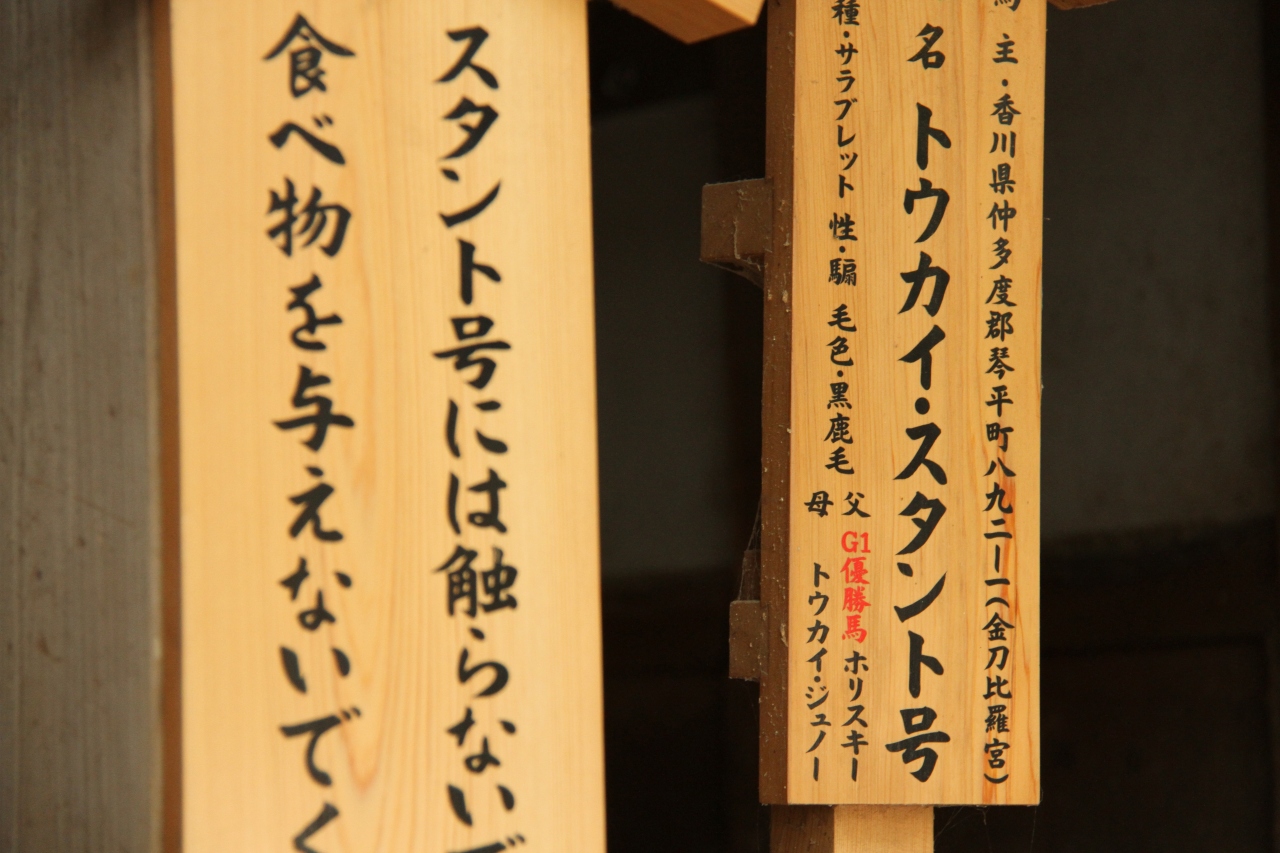 馬主・香川県仲多度郡琴平町八九二ー一（金刀比羅宮）
名 トウカイ・スタント号
種・サラブレット 性・騸 毛色・黒鹿毛
父 G1優勝馬 ホリスキー
母 トウカイ・ジュノー
スタント号には触らないで
食べ物を与えないでく